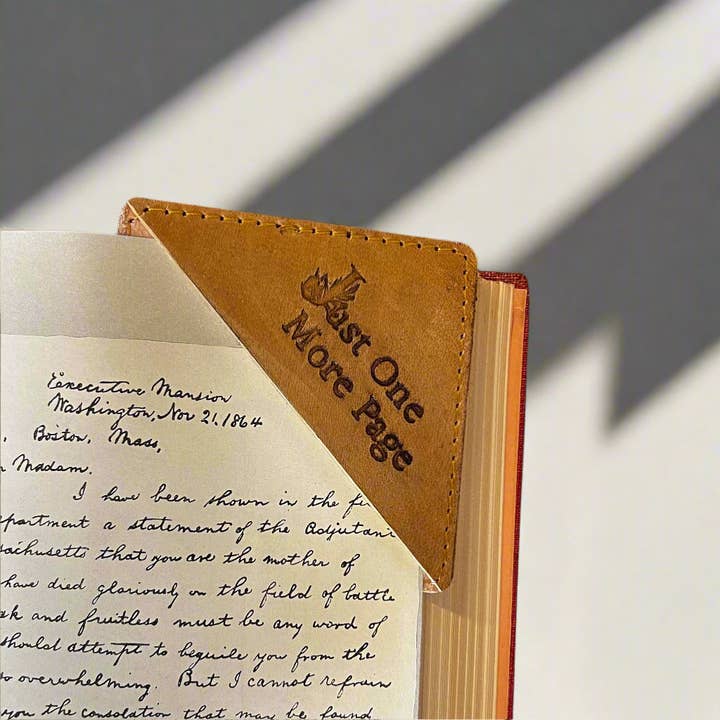 Just One
More Page
Executive Mansion
Washington, Nov 21, 1864
, Boston, Mass,
Madam.
I have been shown in the
a statement of the Adjutan
that you are the mother of
have died gloriously on the field of battle
and fruitless must be any word of
should attempt to beguile you from the
so overwhelming. But I cannot refrain
you the consolation that may be found